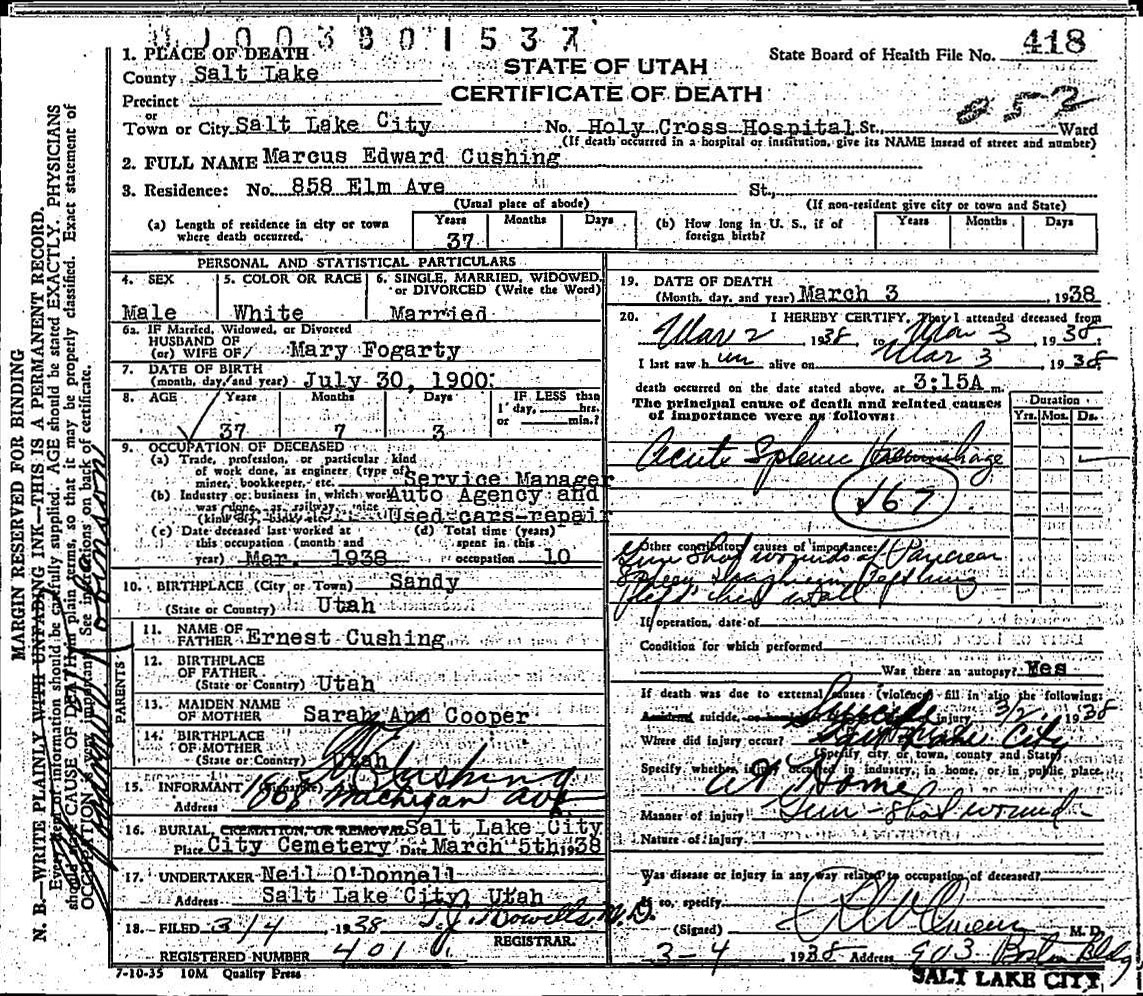 1. PLACE OF DEATH
County Salt Lake
Precinct
or
Town or City Salt Lake City No. Holy Cross Hospital St., Ward
(If death occurred in a hospital or institution, give its NAME insead of street and number)
STATE OF UTAH
CERTIFICATE OF DEATH
State Board of Health File No. 418
252
2. FULL NAME Marcus Edward Cushing
3. Residence: No. 858 Elm Ave St.,
(Usual place of abode) (If non-resident give city or town and State)
(a) Length of residence in city or town where death occurred. Years 37 Months Days
(b) How long in U. S., if of foreign birth? Years Months Days
PERSONAL AND STATISTICAL PARTICULARS
4. SEX Male
5. COLOR OR RACE White
6. SINGLE, MARRIED, WIDOWED, or DIVORCED (Write the Word) Married
6a. IF Married, Widowed, or Divorced
HUSBAND OF
(or) WIFE OF Mary Fogarty
7. DATE OF BIRTH
(month, day, and year) July 30, 1900
8. AGE Years 37 Months 7 Days 3 IF LESS than 1 day, hrs. or min.?
9. OCCUPATION OF DECEASED
(a) Trade, profession, or particular kind
of work done, as engineer (type of)
miner, bookkeeper, etc. Service Manager
(b) Industry or business in which work
was done, Auto Agency and
Used cars-repair
(c) Date deceased last worked at
this occupation (month and
year) Mar. 1938
(d) Total time (years)
spent in this
occupation 10
10. BIRTHPLACE (City or Town) Sandy
(State or Country) Utah
PARENTS
11. NAME OF
FATHER Ernest Cushing
12. BIRTHPLACE
OF FATHER
(State or Country) Utah
13. MAIDEN NAME
OF MOTHER Sarah Ann Cooper
14. BIRTHPLACE
OF MOTHER
(State or Country) Utah
15. INFORMANT Cushing
Address Michigan Ave
16. BURIAL, CREMATION, OR REMOVAL Salt Lake City
Place City Cemetery Date March 5th 1938
17. UNDERTAKER Neil O'Donnell
Address Salt Lake City, Utah
18. FILED 3/4 1938 T. J. Howells, M.D.
REGISTRAR.
REGISTERED NUMBER 401
7-10-35 10M Quality Press
19. DATE OF DEATH
(Month, day, and year) March 3, 1938
20. I HEREBY CERTIFY, That I attended deceased from
Mar 2 1938, to Mar 3 1938.
I last saw him alive on Mar 3 1938
death occurred on the date stated above, at 3:15A m.
The principal cause of death and related causes
of importance were as follows:
Duration
Yrs. Mos. Ds.
Acute Splenic Haemorrhage
167
Other contributory causes of importance:
Gun Shot wounds of Pancreas
Spleen left lung
left chest wall
If operation, date of
Condition for which performed
Was there an autopsy? Yes
If death was due to external causes (violence) fill in also the following:
Accident, suicide, Suicide injury 3/2, 1938
Where did injury occur? Salt Lake City
(Specify city or town, county and State)
Specify whether injury occurred in industry, in home, or in public place.
At Home
Manner of injury Gun-Shot wound
Nature of injury
Was disease or injury in any way related to occupation of deceased?
If so, specify
(Signed) M. D.
3-4 1938 Address 903 Boston Bldg
SALT LAKE CITY
MARGIN RESERVED FOR BINDING
N. B.—WRITE PLAINLY WITH UNFADING INK—THIS IS A PERMANENT RECORD.
Every item of information should be carefully supplied. AGE should be stated EXACTLY. PHYSICIANS
should state CAUSE OF DEATH in plain terms, so that it may be properly classified. Exact statement of
OCCUPATION is very important. See instructions on back of certificate.